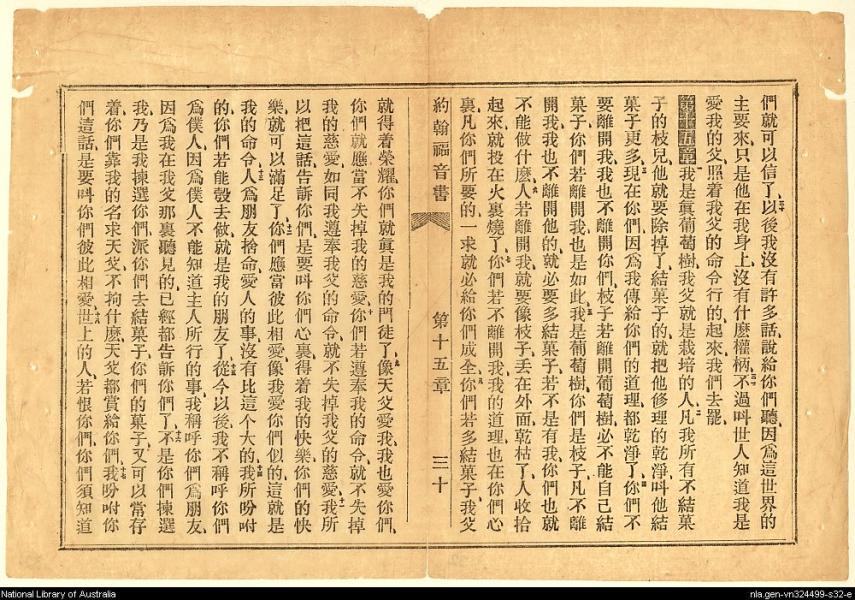 們就可以信了、三十以後我沒有許多話、說給你們聽、因爲這世界的
主要來、只是他在我身上、沒有什麽權柄、三十一不過叫世人知道我是
愛我的父、照着我父的命令行的、起來我們去罷、
第十五章 我是眞葡萄樹、我父就是栽培的人、二凡我所有不結菓
子的枝兒、他就要除掉了、結菓子的、就把他修理的乾淨、叫他結
菓子更多、三現在你們因爲我傳給你們的道理、都乾淨了、四你們不
要離開我、我也不離開你們、枝子若離開葡萄樹、必不能自己結
菓子、你們若離開我、也是如此、五我是葡萄樹、你們是枝子、凡不離
開我、我也不離開他的、就必要多結菓子、若不是有我、你們也就
不能做什麽、六人若離開我、就要像枝子、丟在外面乾枯了、人收拾
起來、就投在火裏燒了、七你們若不離開我、我的道理也在你們心
裏、凡你們所要的、一求就必給你們成全、八你們若多結菓子、我父
約翰福音書 第十五章 三十
就得着榮耀、你們就眞是我的門徒了、九像天父愛我、我也愛你們、
你們就應當不失掉我的慈愛、十你們若遵奉我的命令、就不失掉
我的慈愛、如同我遵奉我父的命令、就不失掉我父的慈愛、十一我所
以把這話告訴你們、是要叫你們心裏、得着我的快樂、你們的快
樂、就可以滿足了、十二你們應當彼此相愛、像我愛你們似的、這就是
我的命令、十三人爲朋友捨命、愛人的事、沒有比這个大的、十四我所吩咐
的、你們若能彀去做、就是我的朋友了、十五從今以後、我不稱呼你們
爲僕人、因爲僕人不能知道主人所行的事、我稱呼你們爲朋友、
因爲我在我父那裏聽見的、已經都告訴你們了、十六不是你們揀選
我、乃是我揀選你們、派你們去結菓子、你們的菓子、又可以常存
着、你們靠我的名求天父、不拘什麽、天父都賞給你們、十七我吩咐你
們這話、是要叫你們彼此相愛、十八世上的人、若恨你們、你們須知道
National Library of Australia
nla.gen-vn324499-s32-e